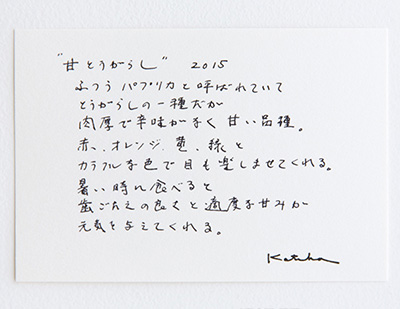 "甘とうがらし" 2015
ふつう パプリカと呼ばれていて
とうがらしの一種だが
肉厚で辛味がなく 甘い品種。
赤、オレンジ、黄、緑と
カラフルな色で目も楽しませてくれる。
暑い時に食べると
歯ごたえの良さと適度な甘みが
元気を与えてくれる。